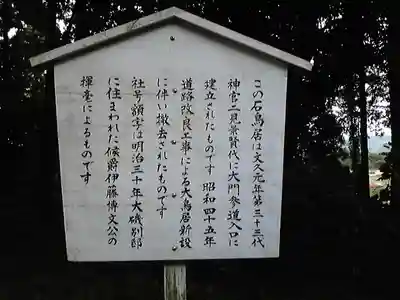 この石鳥居は文久元年第三十三代
神官二見景賢代に大門参道入口に
建立されたものです 昭和四十五年
道路改良工事による大鳥居新設
に伴い撤去されたものです
社号額字は明治三十年大磯別邸
に住まわれた候爵伊藤博文公の
揮毫によるものです